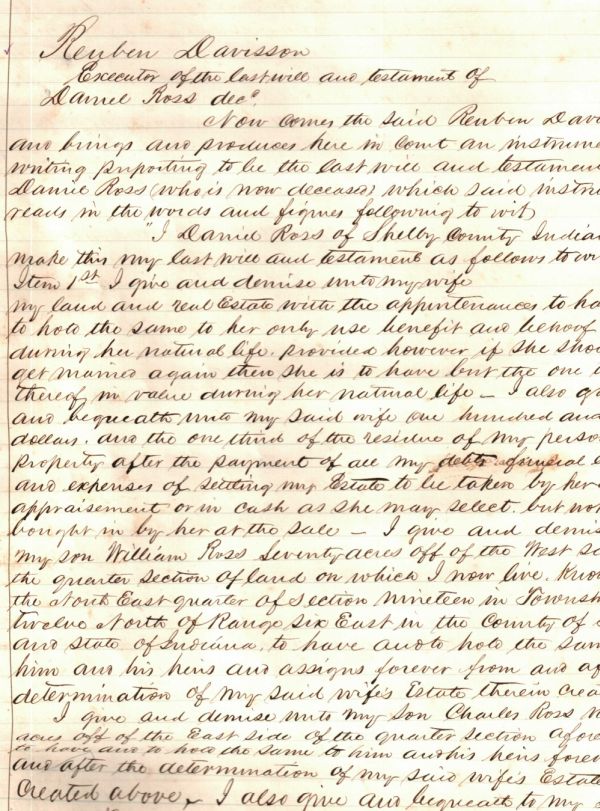 Reuben Davisson
Executor of the last will and testament of
Daniel Ross decd.
Now comes the said Reuben Davi
and brings and produces here in court an instrume
writing purporting to be the last will and testament
Daniel Ross (who is now deceased) which said instru
reads in the words and figures following to wit
"I Daniel Ross of Shelby County India
make this my last will and testament as follows to wi
Item 1st I give and demise unto my wife
my land and real Estate with the appintenances to ha
to hold the same to her only use benefit and behoof
during her natural life. provided however if she shou
get married again then she is to have but the one
thereof in value during her natural life - I also g
and bequeath unto my said wife one hundred and
dollars. and the one third of the residue of my perso
property after the payment of all my debts funeral
and expenses of settling my Estate to be taken by her
appraisement or in cash as she may select. but not
bought in by her at the sale - I give and demis
my son William Ross Seventy acres off of the West si
the quarter section of land on which I now live. Know
the North East quarter of Section nineteen in Townsh
twelve North of Range six East in the County of
and State of Indiana, to have and to hold the sam
him and his heirs and assigns forever from and af
determination of my said wife's Estate therein crea
I give and demise unto my son Charles Ross
acres off of the East side of the quarter section afore
to have and to hold the same to him and his heirs forev
and after the determination of my said wife's Estate
created above, I also give and bequeath to my